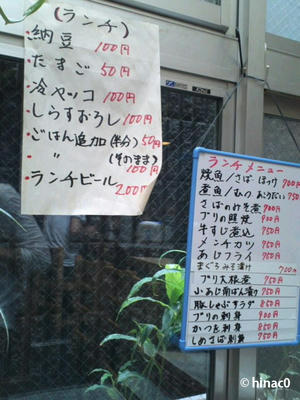 (ランチ)
・納豆 100円
・たまご 50円
・冷ヤッコ 100円
・しらすおろし 100円
・ごはん追加(半分) 50円
・ 〃 (そのまま) 100円
・ランチビール 200円
ランチメニュー
焼魚/さば ほっけ 700円
煮魚/むつ 750円
さばのみそ煮 700円
ブリの照焼 900円
牛すじ煮込 750円
メンチカツ 750円
あじフライ 750円
まぐろみそ漬け 700円
ブリ大根煮 750円
小あじ南ばん漬け 750円
豚しゃぶサラダ 850円
ブリの刺身 900円
かつを刺身 850円
しめさば刺身 750円
© hinac0